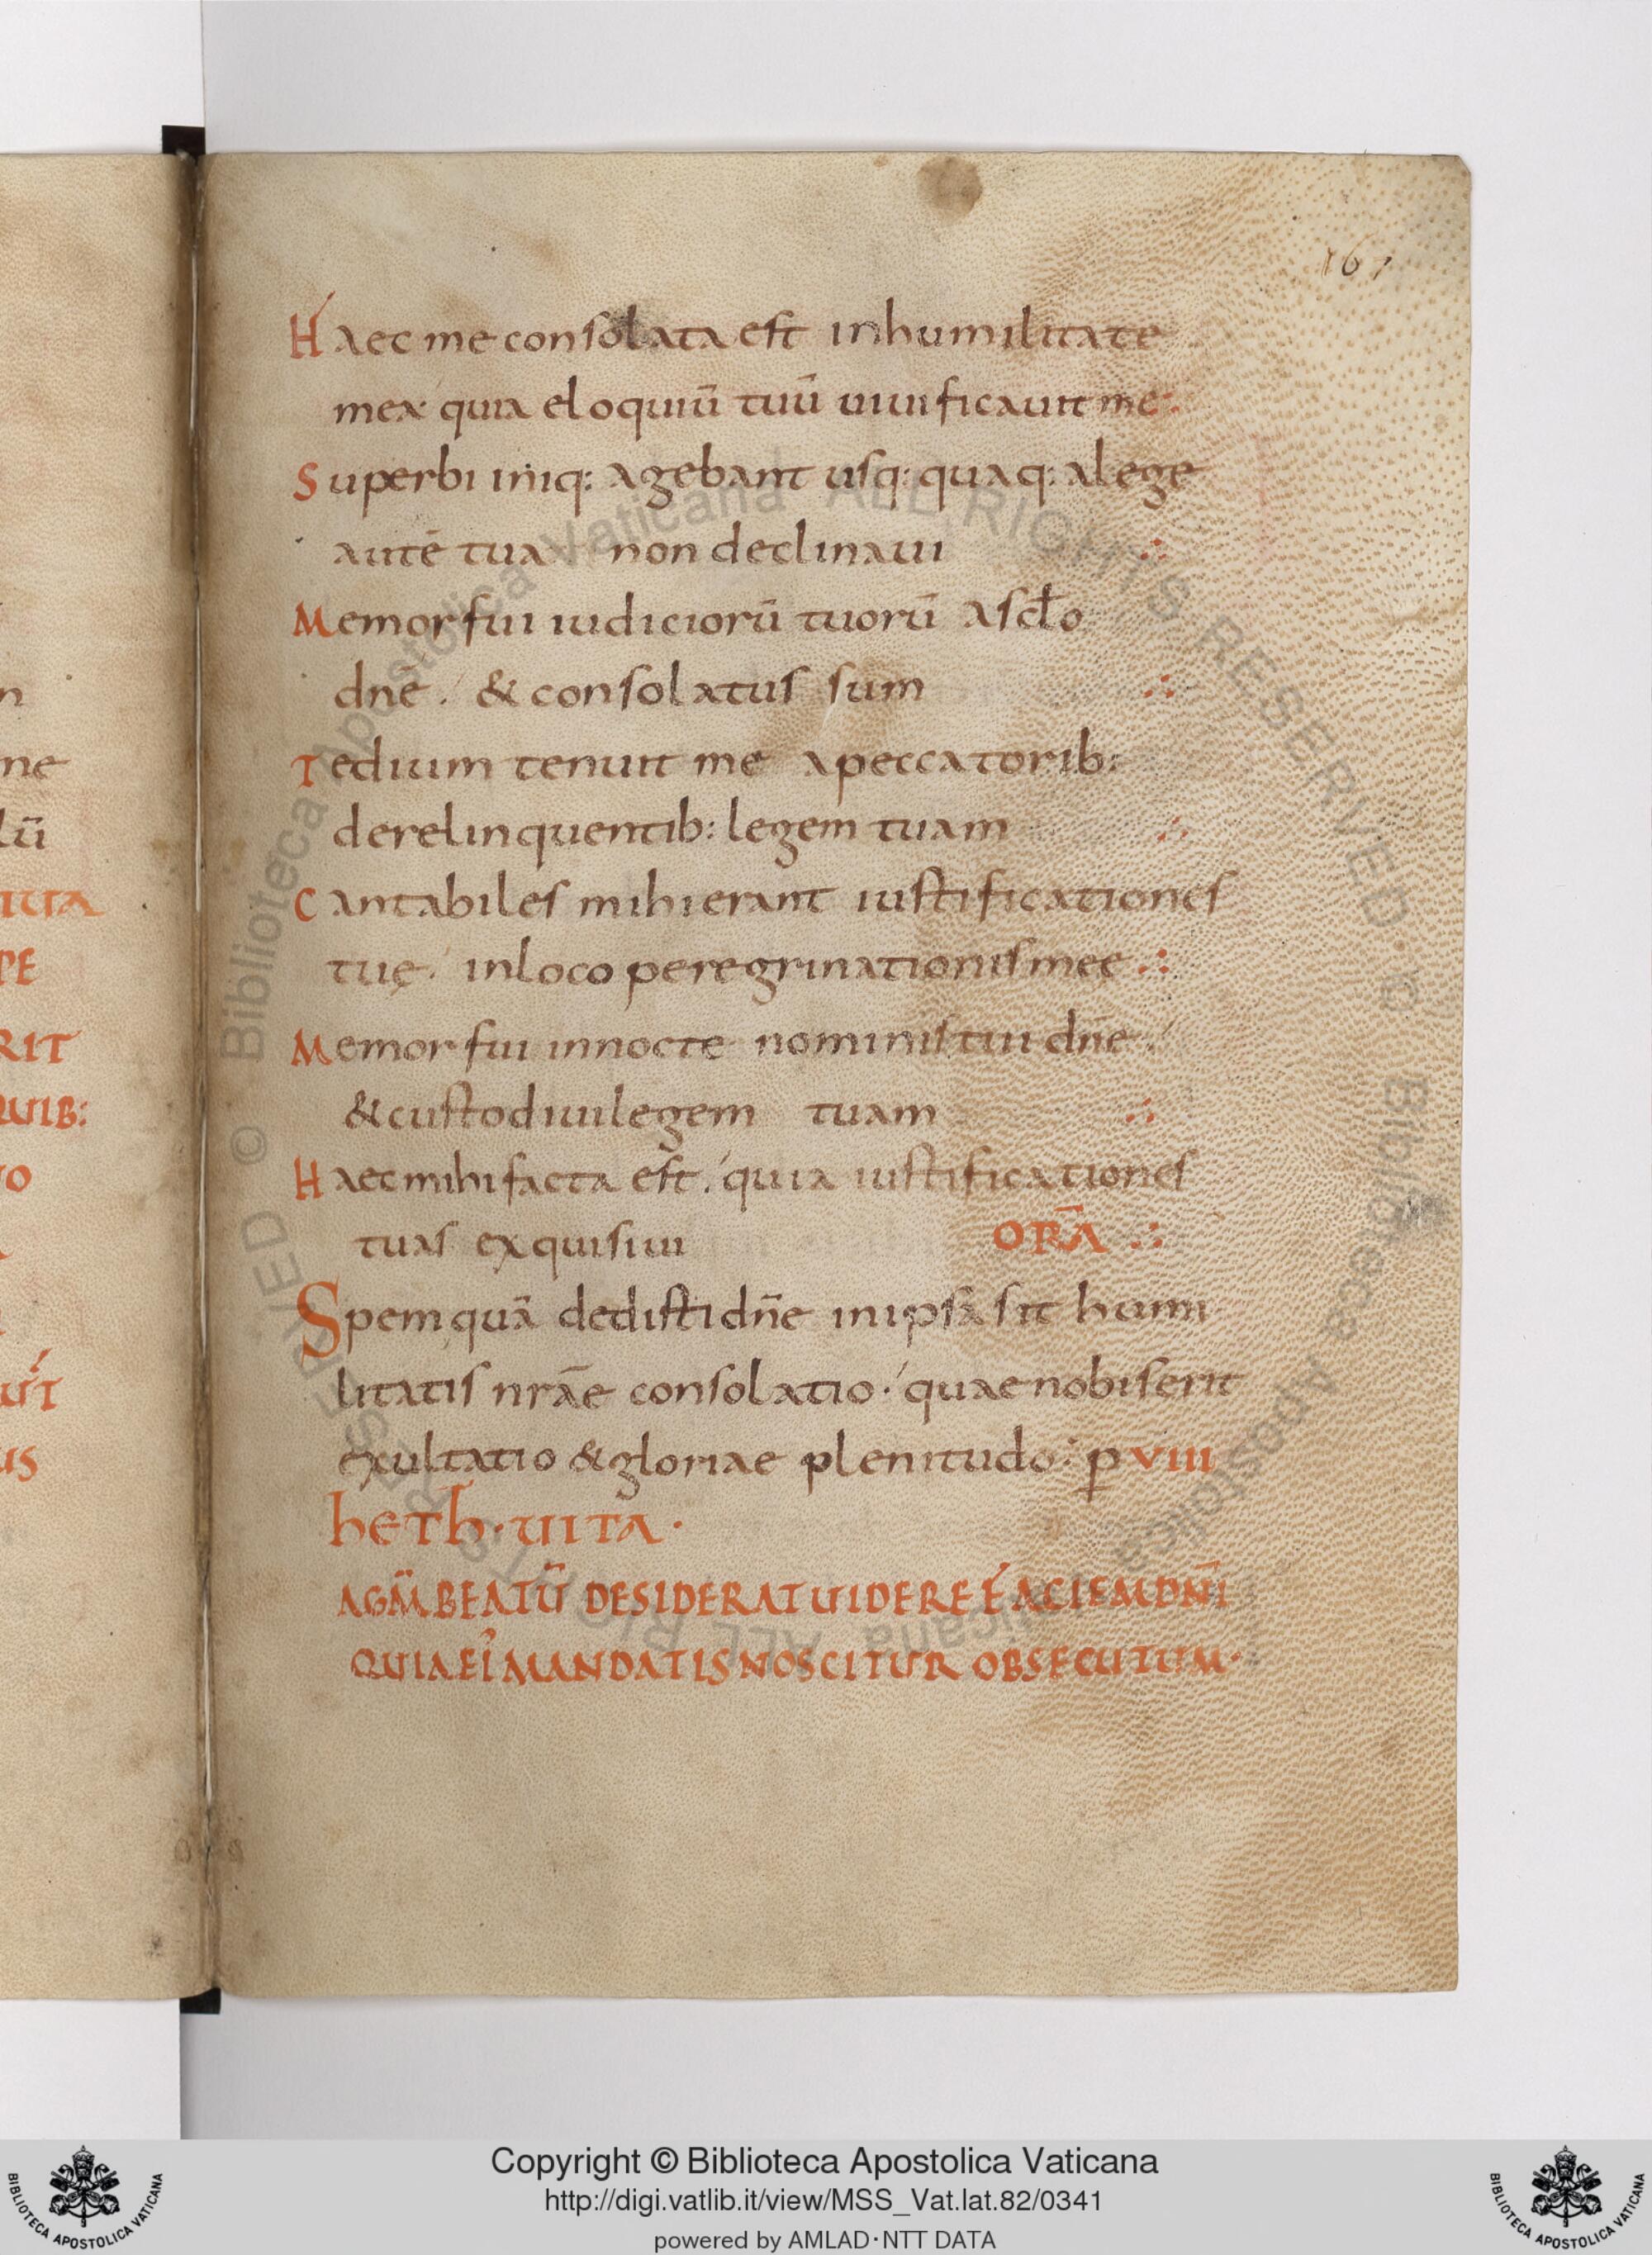 167
Haec me consolata est in humilitate
mea quia eloquiū tuū uiuificauit me
Superbi iniq: agebant usq: quaq: a lege
autē tua non declinaui
Memor fui iudiciorū tuorū a sclo
dnē. & consolatus sum
Tedium tenuit me a peccatorib:
derelinquentib: legem tuam
Cantabiles mihi erant iustificationes
tuę. in loco peregrinationis meę
Memor fui in nocte nominis tui dnē.
& custodiui legem tuam
Haec mihi facta est. quia iustificationes
tuas exquisiui ORĀ
Spem quā dedisti dn̄e in ipsa sit humi
litatis nrāe consolatio. quae nobis erit
exultatio & gloriae plenitudo: p VIII
heth. uita.
AGM̄ BEATŪ DESIDERAT UIDERE FACIEM DN̄I
QUIA EI MANDATIS NOSCITUR OBSECUTUM.
n
ne
lū
ITUA
PE
RIT
QUIB:
O
UT
US
© Biblioteca Apostolica Vaticana ALL RIGHTS RESERVED
© Biblioteca Apostolica Vaticana ALL RIGHTS RESERVED
Copyright © Biblioteca Apostolica Vaticana
http://digi.vatlib.it/view/MSS_Vat.lat.82/0341
powered by AMLAD·NTT DATA
BIBLIOTECA APOSTOLICA VATICANA
BIBLIOTECA APOSTOLICA VATICANA